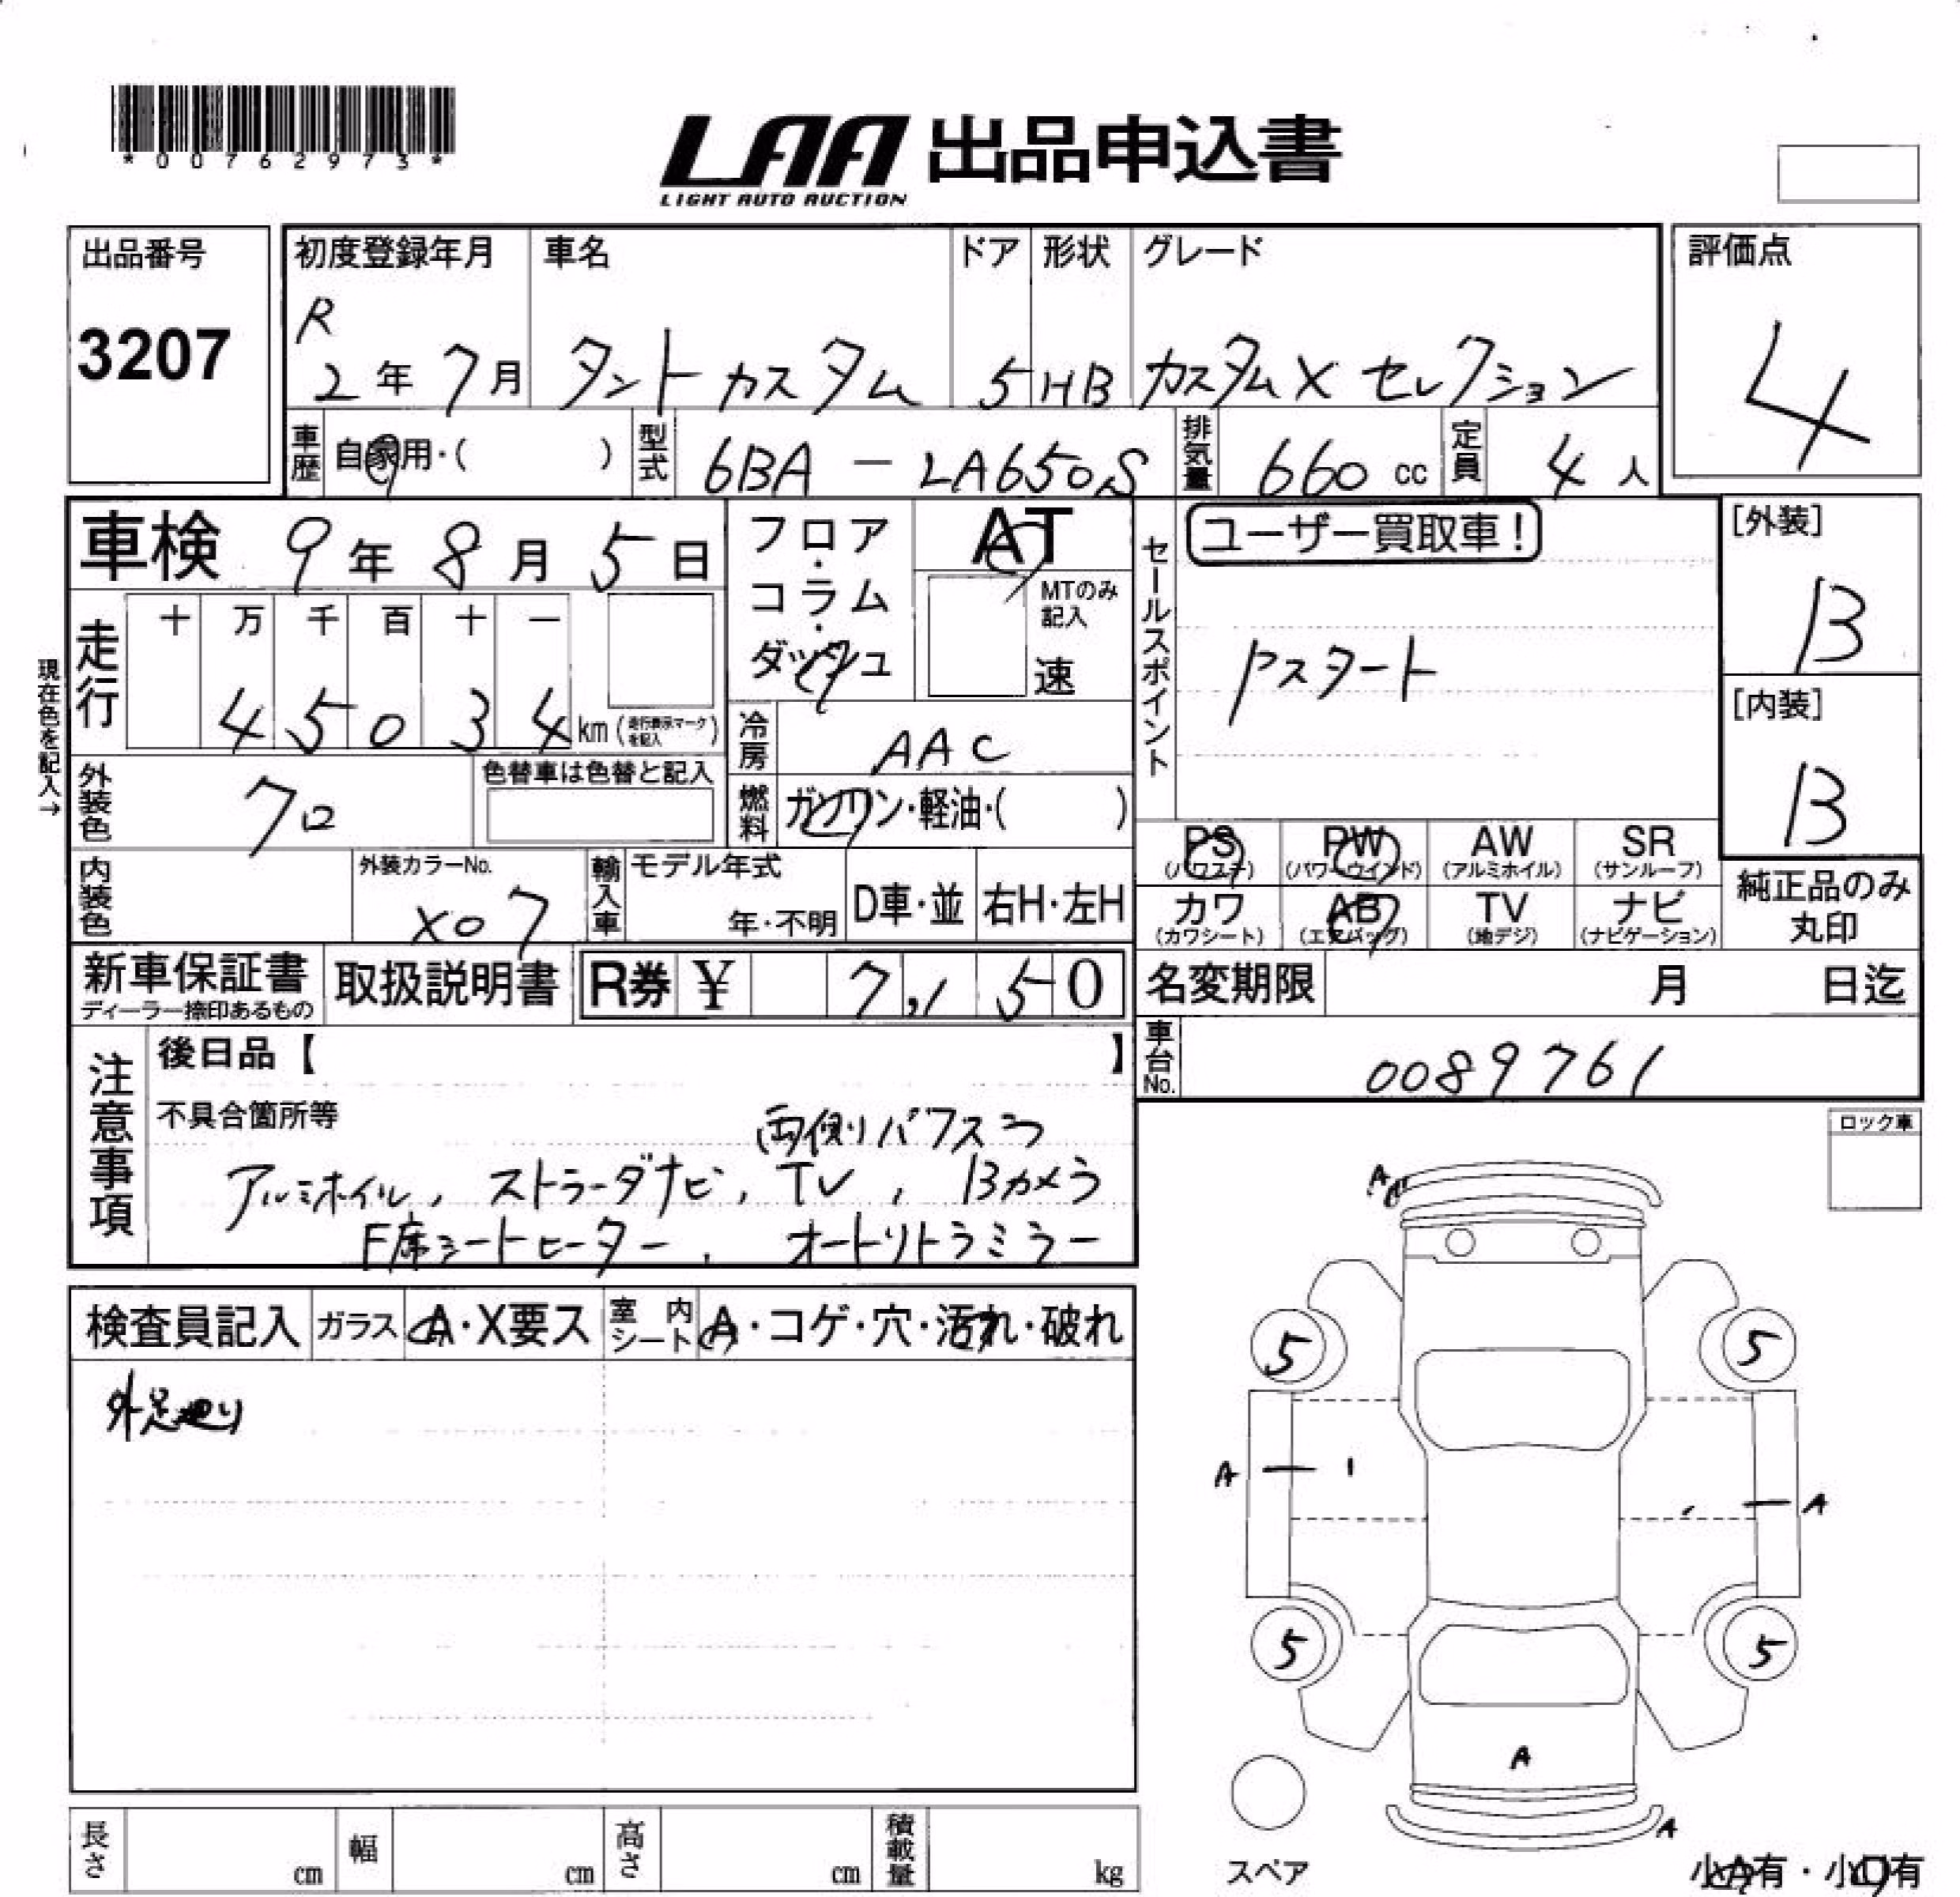 *00762973*
LAA 出品申込書
LIGHT AUTO AUCTION
出品番号
3207
初度登録年月
R
2年7月
車名
タントカスタム
ドア
5
形状
HB
グレード
カスタムXセレクション
評価点
4
車歴
自家用・( )
型式
6BA-LA650S
排気量
660cc
定員
4人
車検 9年8月5日
フロア・コラム・ダッシュ
AT
MTのみ記入
速
セールスポイント
ユーザー買取車!
Pスタート
[外装]
B
[内装]
B
現在色を記入→
走行
十 万 千 百 十 一
4 5 0 3 4 km(走行表示マークを記入)
冷房
AAC
外装色
クロ
色替車は色替と記入
燃料
ガソリン・軽油・( )
PS
(パワステ)
PW
(パワーウィンド)
AW
(アルミホイル)
SR
(サンルーフ)
内装色
外装カラーNo.
X07
輸入車
モデル年式
年・不明
D車・並
右H・左H
カワ
(カワシート)
AB
(エアバッグ)
TV
(地デジ)
ナビ
(ナビゲーション)
純正品のみ
丸印
新車保証書
ディーラー捺印あるもの
取扱説明書
R券 ¥ 7,150
名変期限 月 日迄
車台No.
0089761
注意事項
後日品【 】
不具合箇所等
両側パワスラ
アルミホイル, ストラーダナビ, TV, Bカメラ
F席シートヒーター, オートリトラミラー
ロック車
検査員記入
ガラス
A・X要ス
室内シート
A・コゲ・穴・汚れ・破れ
外足廻り
A
5
5
A
A
5
5
A
A
スペア
小A有・小凹有
長さ
cm
幅
cm
高さ
cm
積載量
kg